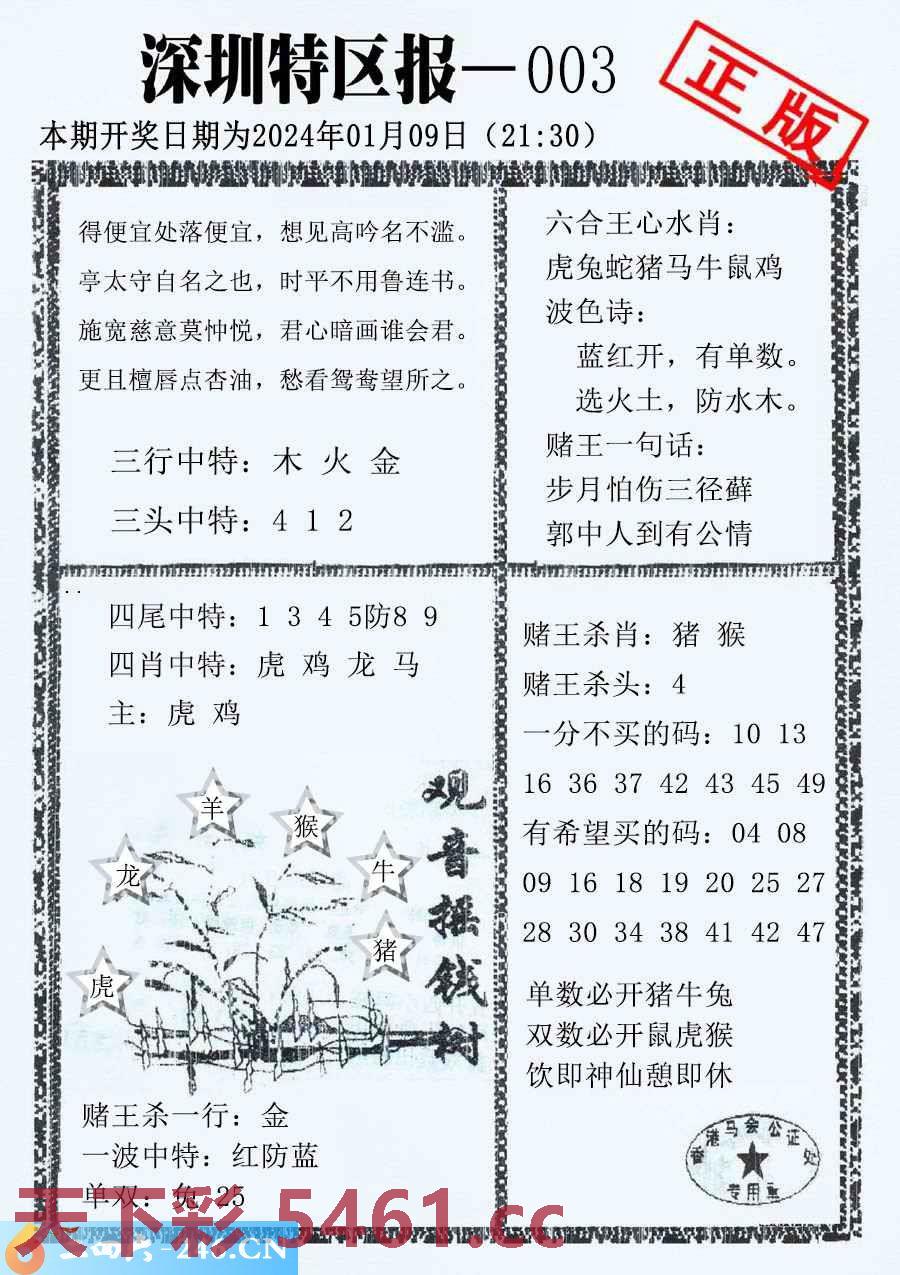 深圳特区报—003
正版
本期开奖日期为2024年01月09日（21:30）
得便宜处落便宜，想见高吟名不滥。
亭太守自名之也，时平不用鲁连书。
施宽慈意莫忡悦，君心暗画谁会君。
更且檀唇点杏油，愁看鸳鸯望所之。
三行中特：木 火 金
三头中特：4 1 2
六合王心水肖：
虎兔蛇猪马牛鼠鸡
波色诗：
蓝红开，有单数。
选火土，防水木。
赌王一句话：
步月怕伤三径藓
郭中人到有公情
四尾中特：1 3 4 5防8 9
四肖中特：虎 鸡 龙 马
主：虎 鸡
羊
猴
龙
牛
猪
虎
观音摇钱树
赌王杀一行：金
一波中特：红防蓝
单双：兔 25
赌王杀肖：猪 猴
赌王杀头：4
一分不买的码：10 13
16 36 37 42 43 45 49
有希望买的码：04 08
09 16 18 19 20 25 27
28 30 34 38 41 42 47
单数必开猪牛兔
双数必开鼠虎猴
饮即神仙憩即休
香港马会公证处
专用章
天下彩 5461.cc